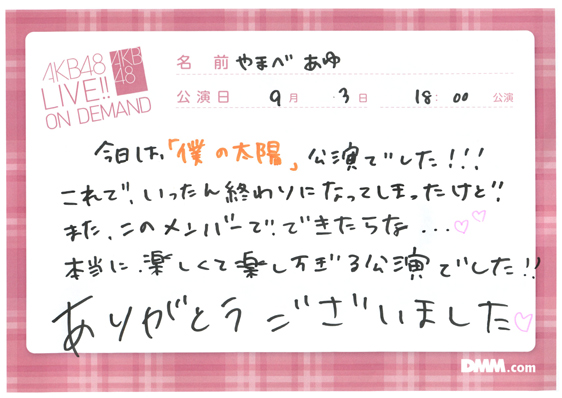 AKB48
LIVE!!
ON DEMAND
AKB
48
名 前 やまべ あゆ
公演日 9月 3日 18:00 公演
今日は、「僕の太陽」公演でした!!!
これで、いったん終わりになってしまったけど!!
また、このメンバーで、できたらな...♡♡
本当に、楽しくて楽しすぎる公演でした!!
ありがとうございました♡
DMM.com